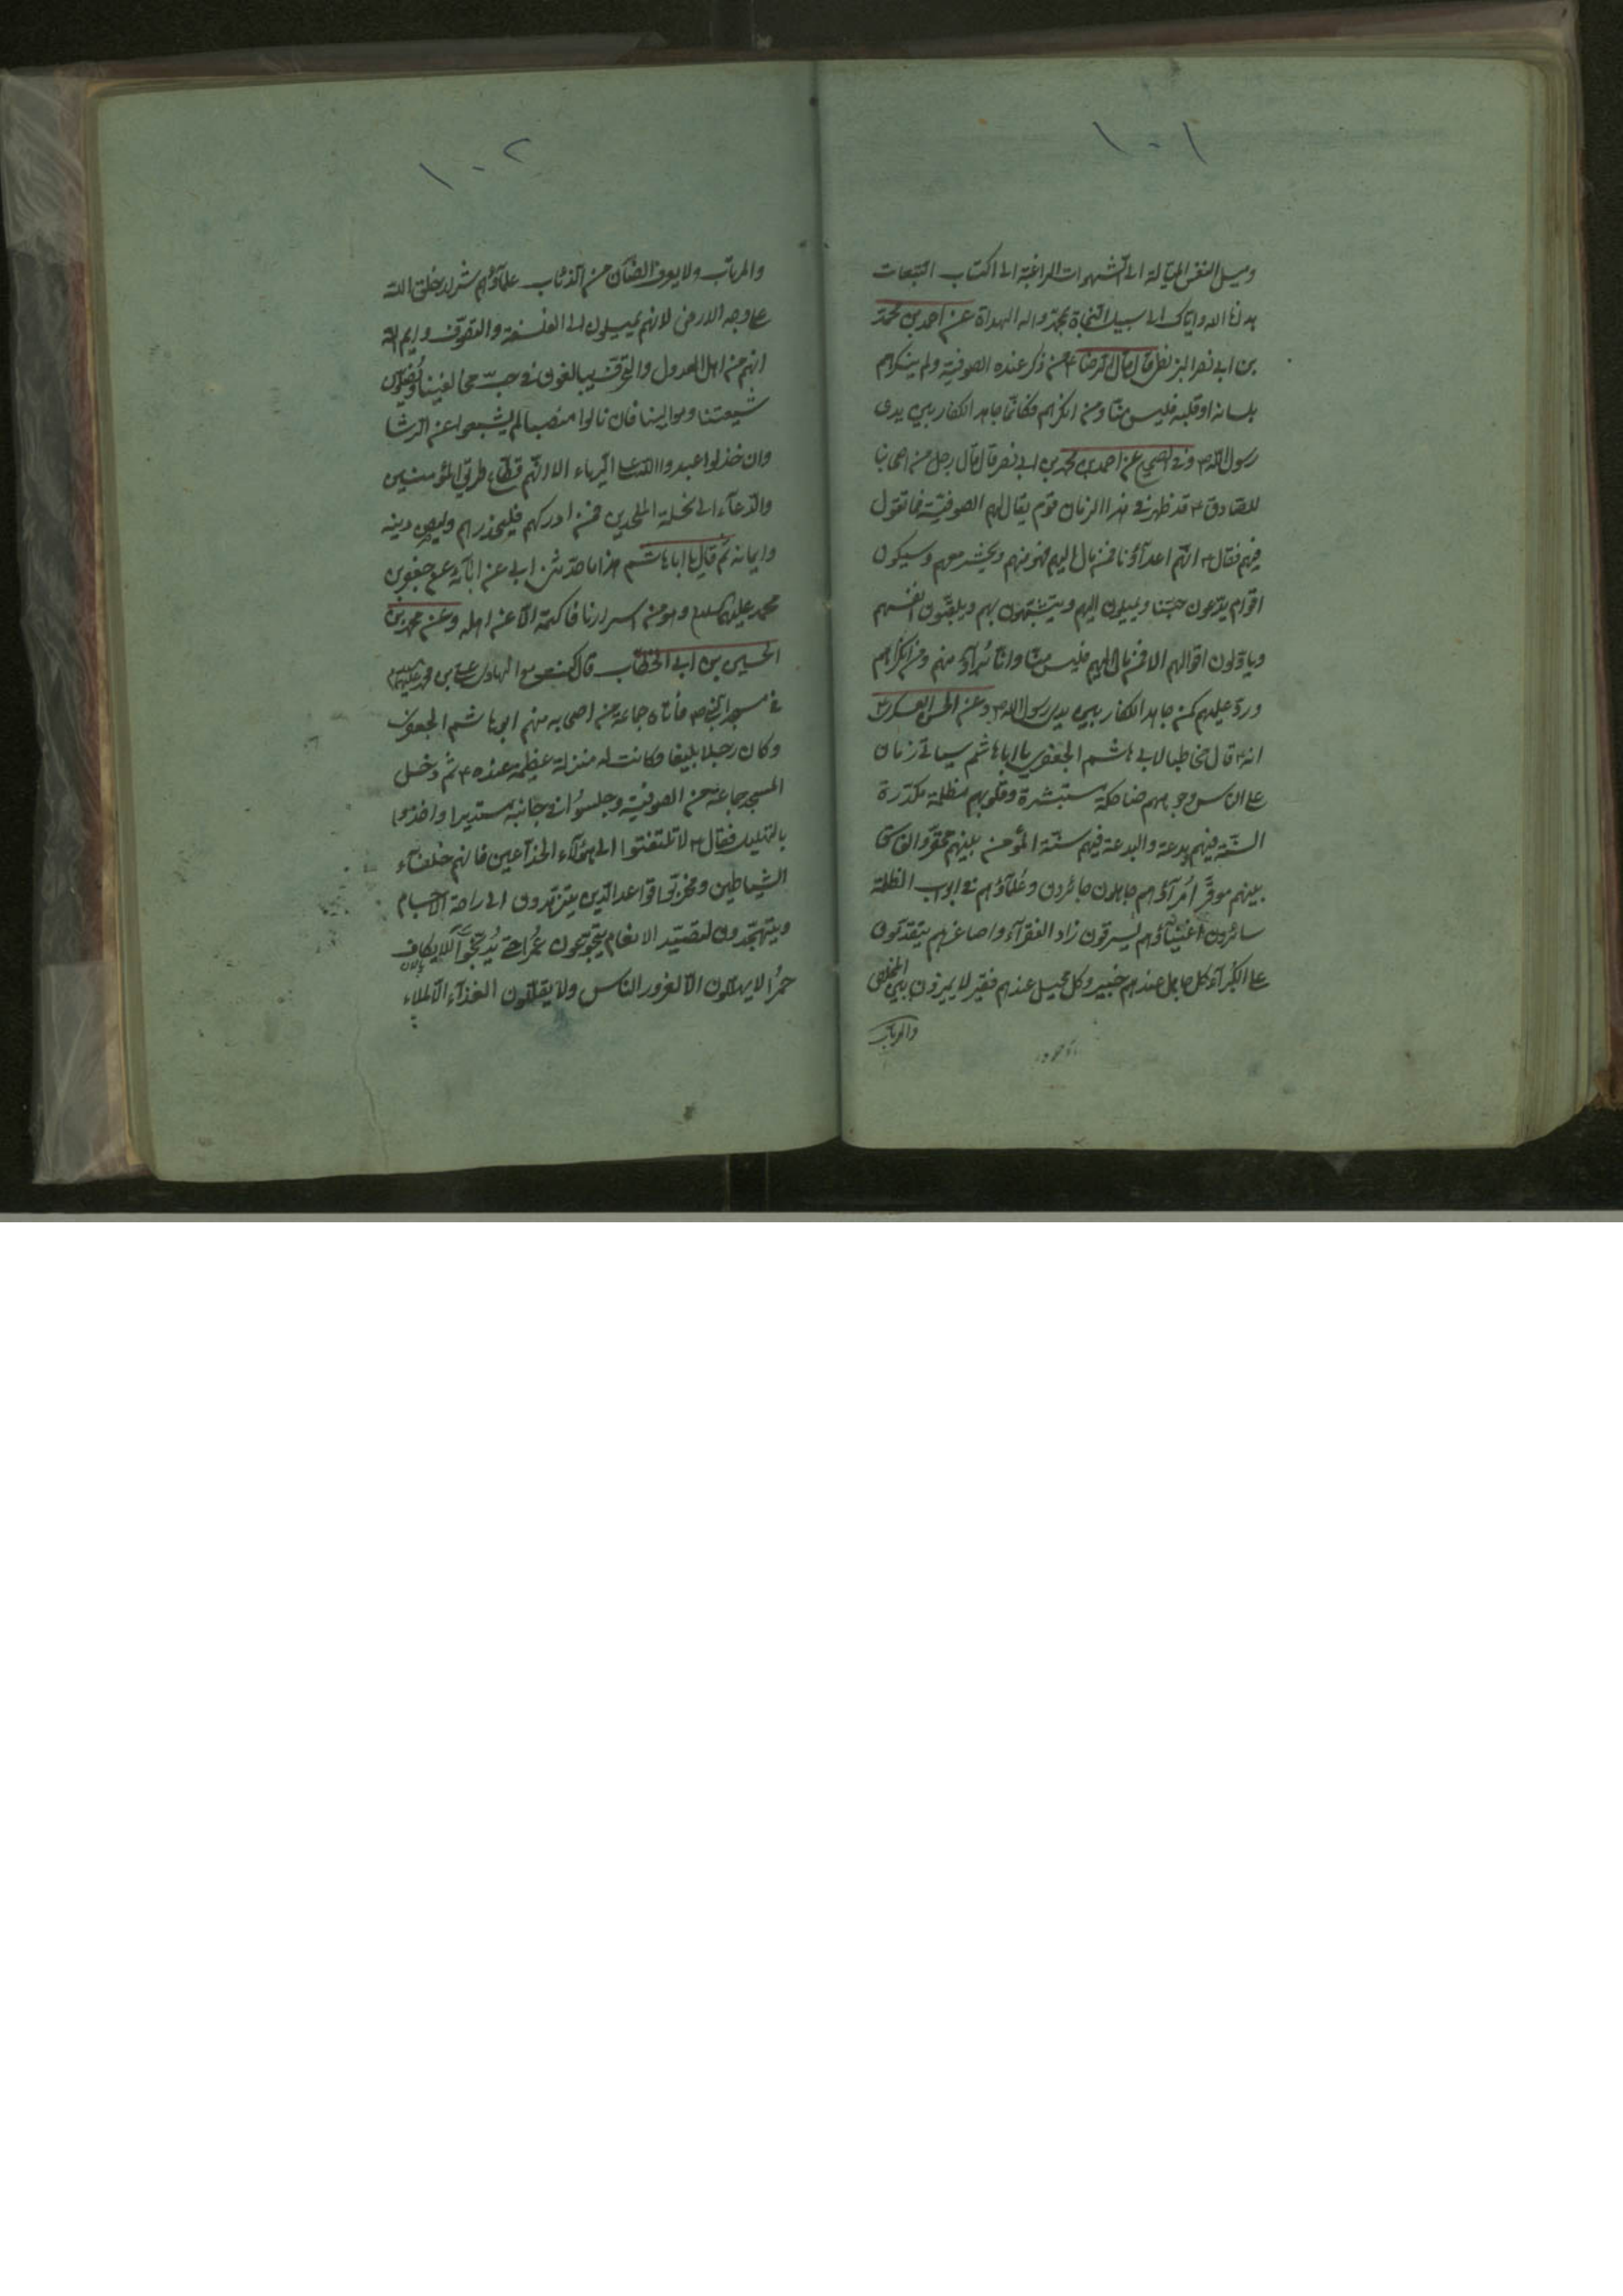 ١٠١
وميل النفس الميالة الى الشهوات الراغبة الى اكتساب التبعات
هدانا الله واياك الى سبيل النجاة بمحمد واله الهداة عن احمد بن محمد
بن ابى نصر البزنطى قال قال الرضا ع من ذكر عنده الصوفية ولم ينكرهم
بلسانه او قلبه فليس منا ومن انكرهم فكانما جاهد الكفار بين يدى
رسول الله ص وفى الصحيح عن احمد بن محمد بن ابى نصر قال قال رجل من اصحابنا
للصادق ع قد ظهر فى هذا الزمان قوم يقال لهم الصوفية فما تقول
فيهم فقال ع انهم اعداؤنا فمن مال اليهم فهو منهم ويحشر معهم وسيكون
اقوام يدّعون حبّنا ويميلون اليهم ويتشبّهون بهم ويلقّبون انفسهم
وياولون اقوالهم الا فمن مال اليهم فليس منّا وانّا بُرآؤ منهم ومن انكرهم
وردّ عليهم كمن جاهد الكفار بين يدى رسول الله ص وعن الحسن العسكرى ع
انه ع قال مخاطبا لابى هاشم الجعفرى يا ابا هاشم سياتى زمان
على الناس وجوههم ضاحكة مستبشرة وقلوبهم مظلمة مكدّرة
السّنّة فيهم بدعة والبدعة فيهم سنّة المؤمن بينهم محقّر والفاسق
بينهم موقّر اُمرآؤهم جاهلون جائرون وعُلمآؤهم فى ابواب الظلمة
سائرون اغنيآؤهم يسرقون زاد الفقرآء واصاغرهم يتقدّمون
على الكبرآء كل جاهل عندهم خبير وكل محيل عندهم فقير لا يميزون بين المخلص
والمرتاب
١٠٢
والمرتاب ولا يعرف الضأن من الذئاب علمآؤهم شرار خلق الله
على وجه الارض لانهم يميلون الى الفلسفة والتصوّف وايم الله
انهم من اهل العدول والتحرّف يبالغون فى حبّ مخالفينا ويُضلّون
شيعتنا وموالينا فان نالوا منصبا لم يشبعوا عن الرشا
وان خذلوا عبدوا الله على الرياء الا انّهم قطّاع طريق المؤمنين
والدّعآء الى نحلة الملحدين فمن ادركهم فليحذرهم وليصن دينه
وايمانه ثم قال يا ابا هاشم هذا ما حدّثنى ابى عن آبآئه عن جعفر بن
محمد عليهم السلام وهو من اسرارنا فاكتمه الا عن اهله وعن محمد بن
الحسين بن ابى الخطّاب قال كنت مع الهادى على بن محمد عليهما السلام
فى مسجد النبى ص فأتاه جماعة من اصحابه منهم ابو هاشم الجعفرى
وكان رجلا بليغا وكانت له منزلة عظيمة عنده ع ثم دخل
المسجد جماعة من الصوفية وجلسوا فى جانبه مستديرا واخذوا
بالتهليل فقال ع لا تلتفتوا الى هؤلآء الخدّاعين فانهم خلفآء
الشياطين ومخرّبوا قواعد الدّين يتزهّدون الى راحة الاجسام
ويتهجّدون لتصيّد الانعام يتجوّعون عُمراً حتى يُديّخوا للايكاف
حُمُراً لا يهلّلون الّا لغرور الناس ولا يقلّلون الغذآء الّا لملاء